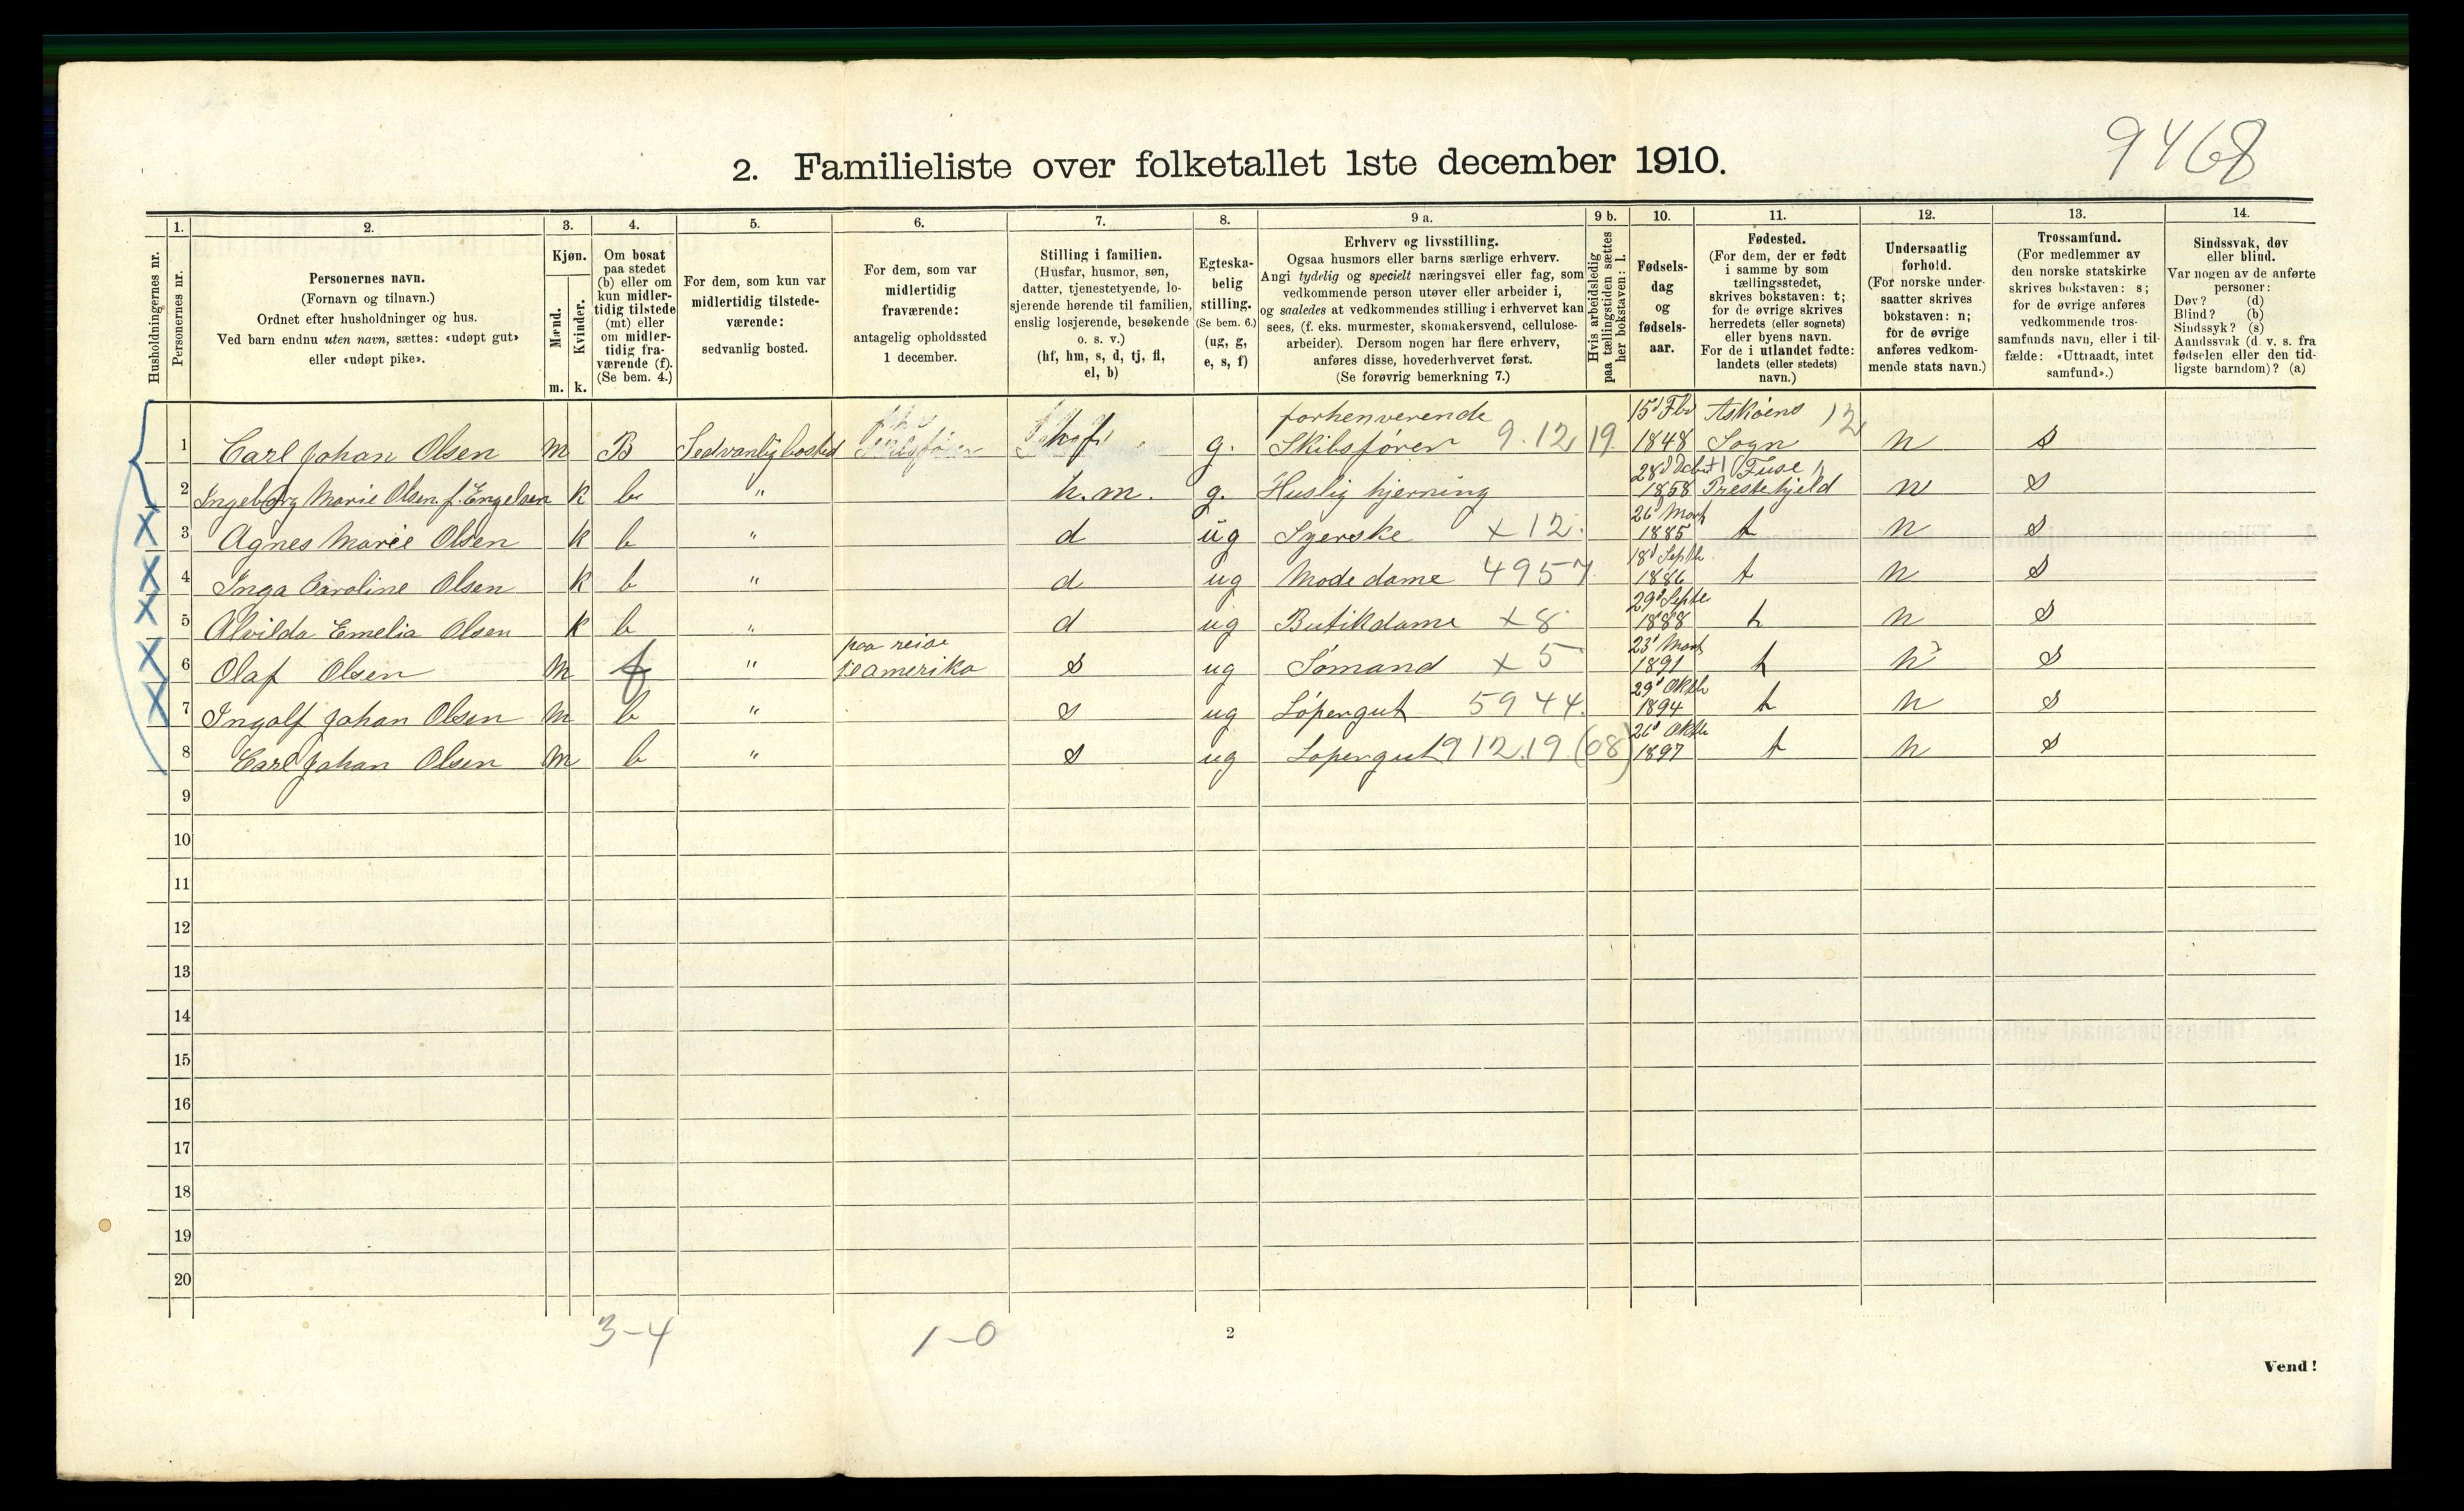 9468
2. Familieliste over folketallet 1ste december 1910.
Husholdningernes nr.
1.
Personernes nr.
2.
Personernes navn.
(Fornavn og tilnavn.)
Ordnet efter husholdninger og hus.
Ved barn endnu uten navn, sættes: «udøpt gut»
eller «udøpt pike».
3.
Kjøn.
Mænd.
Kvinder.
m. k.
4.
Om bosat
paa stedet
(b) eller om
kun midler-
tidig tilstede
(mt) eller
om midler-
tidig fra-
værende (f).
(Se bem. 4.)
5.
For dem, som kun var
midlertidig tilstede-
værende:
sedvanlig bosted.
6.
For dem, som var
midlertidig
fraværende:
antagelig opholdssted
1 december.
7.
Stilling i familien.
(Husfar, husmor, søn,
datter, tjenestetyende, lo-
sjerende hørende til familien,
enslig losjerende, besøkende
o. s. v.)
(hf, hm, s, d, tj, fl,
el, b)
8.
Egteska-
belig
stilling.
(Se bem. 6.)
(ug, g,
e, s, f)
9 a.
Erhverv og livsstilling.
Ogsaa husmors eller barns særlige erhverv.
Angi tydelig og specielt næringsvei eller fag, som
vedkommende person utøver eller arbeider i,
og saaledes at vedkommendes stilling i erhvervet kan
sees, (f. eks. murmester, skomakersvend, cellulose-
arbeider). Dersom nogen har flere erhverv,
anføres disse, hovederhvervet først.
(Se forøvrig bemerkning 7.)
9 b.
Hvis arbeidsledig
paa tællingstiden sættes
her bokstaven: l.
10.
Fødsels-
dag
og
fødsels-
aar.
11.
Fødested.
(For dem, der er født
i samme by som
tællingsstedet,
skrives bokstaven: t;
for de øvrige skrives
herredets (eller sognets)
eller byens navn.
For de i utlandet fødte:
landets (eller stedets)
navn.)
12.
Undersaatlig
forhold.
(For norske under-
saatter skrives
bokstaven: n;
for de øvrige
anføres vedkom-
mende stats navn.)
13.
Trossamfund.
(For medlemmer av
den norske statskirke
skrives bokstaven: s;
for de øvrige anføres
vedkommende tros-
samfunds navn, eller i til-
fælde: «Uttraadt, intet
samfund».)
14.
Sindssvak, døv
eller blind.
Var nogen av de anførte
personer:
Døv? (d)
Blind? (b)
Sindssyk? (s)
Aandssvak (d. v. s. fra
fødselen eller den tid-
ligste barndom)? (a)
forhenverende 15d Fbr Askøens 12
1 Carl Johan Olsen m B Sedvanlig bosted hf g. Skibsfører 9.12 19. 1848 Sogn n s
28d Fuse
2 Ingeborg Marie Olsen f. Engelsen k b " h.m. g. Huslig hjerning 1858 Prestehjeld n s
26 Mart
3 Agnes Marie Olsen k b " d ug Syerske x 12. 1885 t n s
18d Septb
4 Inga Caroline Olsen k b " d ug Modedame 4957 1886 t n s
29d Septe
5 Alvilda Emelia Olsen k b " d ug Butikdame x 8 1888 t n s
paa reise 23d Mart
6 Olaf Olsen m f " amerika s ug Sømand x 5 1891 t n s
29d Oktb
7 Ingolf Johan Olsen m b " s ug Løpergut 5944. 1894 t n s
26d Oktb
8 Carl Johan Olsen m b " s ug Løpergut 912.19 (08) 1897 t n s
9
10
11
12
13
14
15
16
17
18
19
20
3-4 1-0
2
Vend!